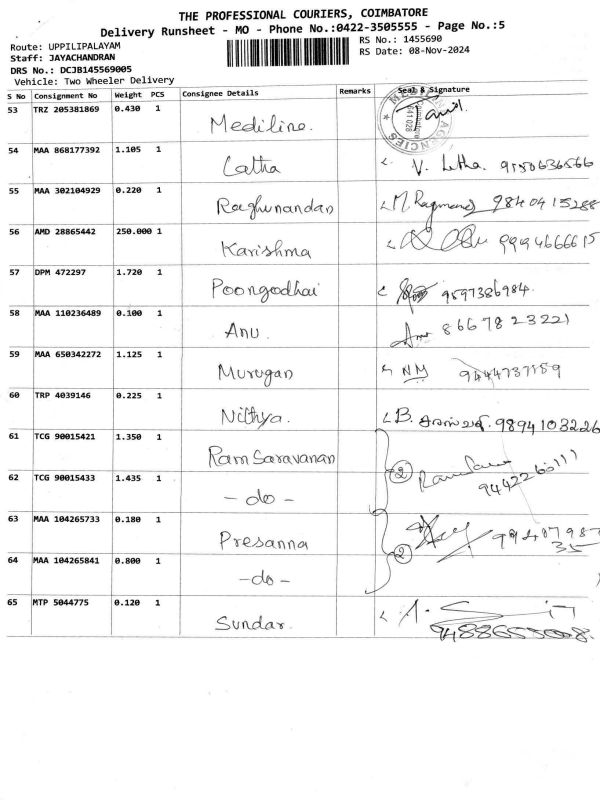 THE PROFESSIONAL COURIERS, COIMBATORE
Delivery Runsheet - MO - Phone No.:0422-3505555 - Page No.:5
Route: UPPILIPALAYAM
RS No.: 1455690
Staff: JAYACHANDRAN
RS Date: 08-Nov-2024
DRS No.: DCJB145569005
Vehicle: Two Wheeler Delivery
S No Consignment No Weight PCS Consignee Details Remarks Seal & Signature
53 TRZ 205381869 0.430 1 Mediline. AGENCIES
54 MAA 868177392 1.105 1 Latha V. Letha. 9150636566
55 MAA 302104929 0.220 1 Raghunandan 9840415288
56 AMD 28865442 250.000 1 Karishma 9994666615
57 DPM 472297 1.720 1 Poongodhai 9597386984.
58 MAA 110236489 0.100 1 Anu. 8667823221
59 MAA 650342272 1.125 1 Murugan NM 9444737159
60 TRP 4039146 0.225 1 Nithya. B. 9894103226
61 TCG 90015421 1.350 1 Ram Saravanan
62 TCG 90015433 1.435 1 - do - 2
63 MAA 104265733 0.180 1 Presanna
64 MAA 104265841 0.800 1 - do - 2
65 MTP 5044775 0.120 1 Sundar.